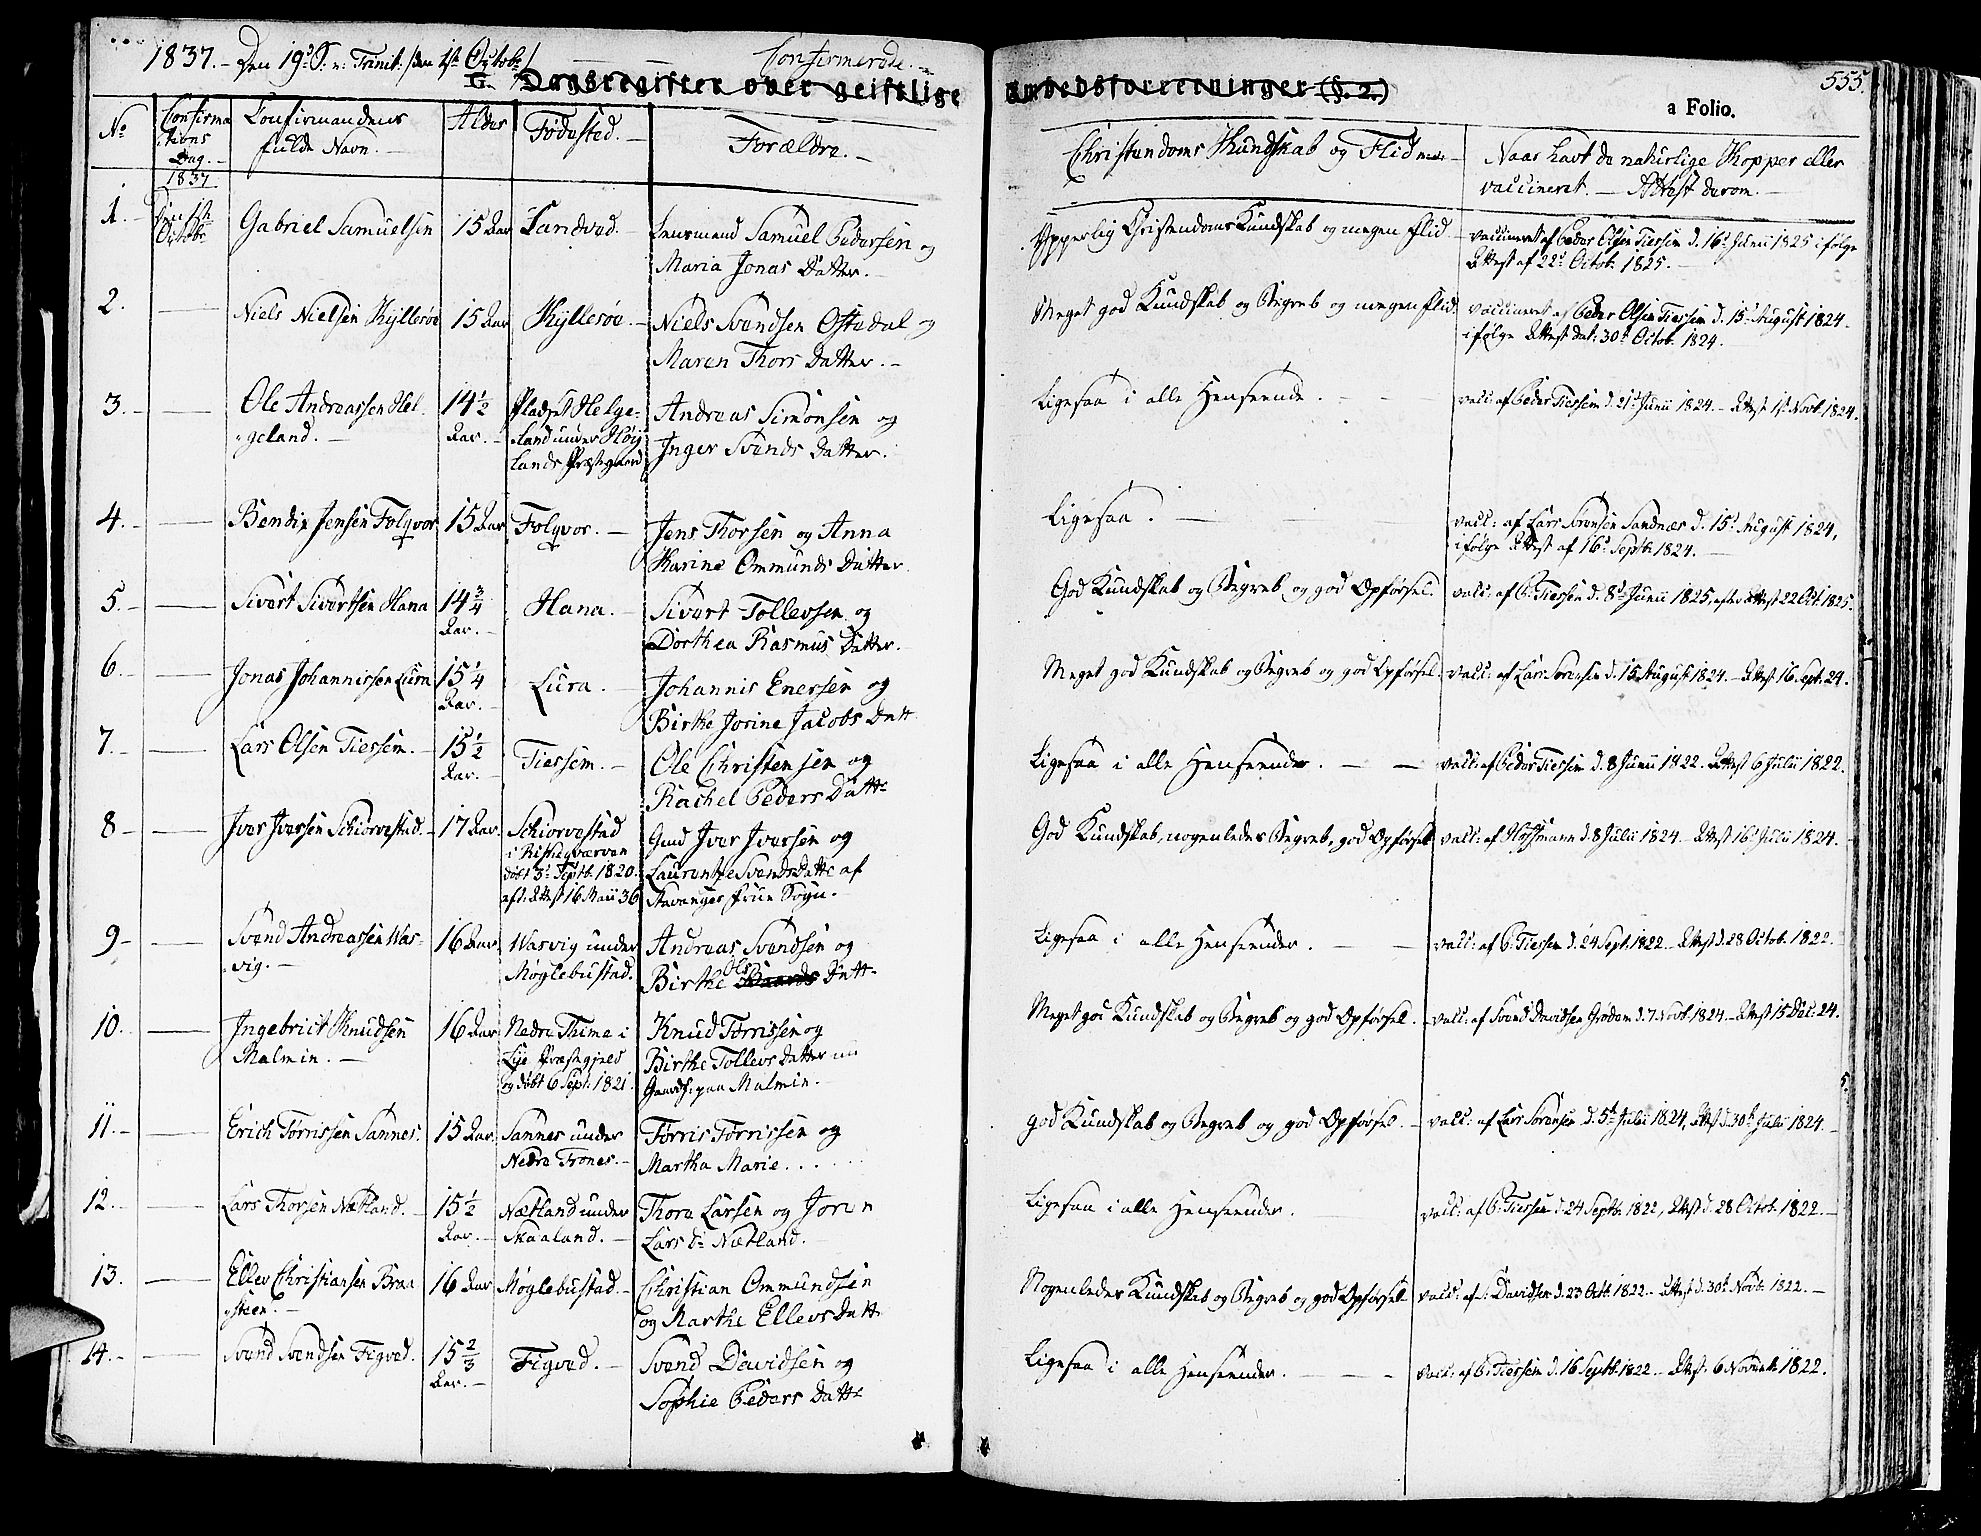 1837. - Den 19de S. n: Trinit: /den 1ste Octobr/
Confirmerede. -
G. Dagsregister over geistlige Embedsforretninger (§. 2.)
555.
a Folio.
No
Confirma
tions
Dag. -
Confirmandens
fulde Navn. -
Alder
Fødested. -
Forældre. -
Christendoms Kundskab og Flid
Naar havt de naturlige Kopper eller
vaccineret. - Attest derom. -
1837
1. - Den 1ste
Octobr
Gabriel Samuelsen
15 Aar
Sandved. -
Lensmand Samuel Pedersen og
Maria Jonas Datter. -
Ypperlig Christendoms Kundskab og megen Flid. -
vaccineret af Peder Olsen Tiessem d. 16de Junii 1825 ifølge
Attest af 22de Octob. 1825. -
2.
Niels Nielsen Kyllesøe
15 Aar
Kyllesøe. -
Niels Svendsen Ostedal og
Maren Thors Datter. -
Meget god Kundskab og Begreb og megen Flid.
vaccineret af Peder Olsen Tiessem d. 15de August 1824.
ifølge Attest dat: 30te Octob. 1824.
3. -
Ole Andreassen Hel-
geland. -
14½
Aar. -
Pladset Helge-
land under Høy
lands Præstegaard
Andreas Simonsen og
Inger Svends Datter.
Ligesaa i alle Henseende. -
vacc: af Peder Tiessem d. 21de Junii 1824. - Attest 1ste Novb. 1824.
4. -
Bendix Jensen Folqvor
15 Aar
Folqvor. -
Jens Thorsen og Anna
Karine Ommunds Datter.
Ligesaa. -
vacc: af Lars Sørensen Sandnæs d. 15de August 1824,
ifølge Attest af 16de Septb. 1824. -
5. -
Sivert Sivertsen Hana
14¾
Aar. -
Hana. -
Sivert Tollevsen og
Dorthea Rasmus Datter. -
God Kundskab og Begreb og god Opførsel.
vacc: af P: Tiessem d. 8de Junii 1825, efter Attest 22 Oct. 1825.
6. -
Jonas Johannissen Lura
15¼
Aar. -
Lura. -
Johannis Enersen og
Birthe Jorine Jacobs Datt
Meget god Kundskab og Begreb og god Opførsel.
vacc: af Lars Sørensen d. 15 August 1824. - Attest 16. Sept. 24.
7. -
Lars Olsen Tiessem. -
15½
Aar. -
Tiessem. -
Ole Christensen og
Rachel Peders Datt
Ligesaa i alle Henseender. -
vacc: af Peder Tiessem d. 8 Junii 1822. Attest 6 Julii 1822.
8 -
Iver Iversen Schiorvestad. -
17 Aar.
Schiorvestad
døbt 3de Septb. 1820.
eft: Attest 16 Maii 36
Iver Iversen og
Laurentze Svends Datte af
Stavanger Frue Sogn. -
God Kundskab, nogenledes Begreb, god Opførsel
vacc: af Hoffmann d. 8 Julii 1824 - Attest 16de Julii 1824.
9 -
Svend Andreassen Was-
vig. -
16 Aar.
Wasvig under
Møglebustad.
Andreas Svendsen og
Birthe Ols Datt
Ligesaa i alle Henseender. -
vacc: af P: Tiessem d. 24 Sept. 1822. - Attest d. 28 Octob. 1822.
10. -
Ingebrict Knudsen
Malmin. -
16 Aar
Nedre Thime i
Lye Præstegjeld
og døbt 6 Sept. 1821.
Knud Tørrissen og
Birthe Tollevs Datter nu
paa Malmin. -
Meget god Kundskab og Begreb og god Opførsel. -
vacc: af Svend Davidsen Grødem d. 7. Novb. 1824. - Attest 15 Dec: 24.
11. -
Erich Tørrissen Sannes.
15 Aar
Sannes under
Nedre Trones. -
Tørris Tørrissen og
Martha Marie . . . . . .
God Kundskab og Begreb og god Opførsel. -
vacc: af Lars Sørensen d. 5te Julii 1824, Attest d. 30te Julii 1824. -
12. -
Lars Thorsen Netland. -
15½
Aar. -
Netland under
Skaaland. -
Thore Larsen og Joren
Lars Dr Netland. -
Ligesaa i alle Henseender.
vacc: af P: Tiessem d. 24 Septb. 1822, Attest d. 28 Octob. 1822. -
13.
Ellev Christiansen Braa
steen. -
16 Aar
Møglebustad. -
Christian Ommundsen
og Marthe Ellevs Datt
Nogenledes Kundskab og Begreb og god Opførsel
vacc: af S: Davidsen d. 23 Octb. 1822 - Attest d. 30te Novb. 1822. -
14. -
Svend Svendsen Figved.
15⅔
Aar. -
Figved. -
Svend Davidsen og
Sophie Peders Datte
Ligesaa i alle Henseender. -
vacc: af P: Tiessem d. 16 Septb. 1822 - Attest. 6 Novemb. 1822.